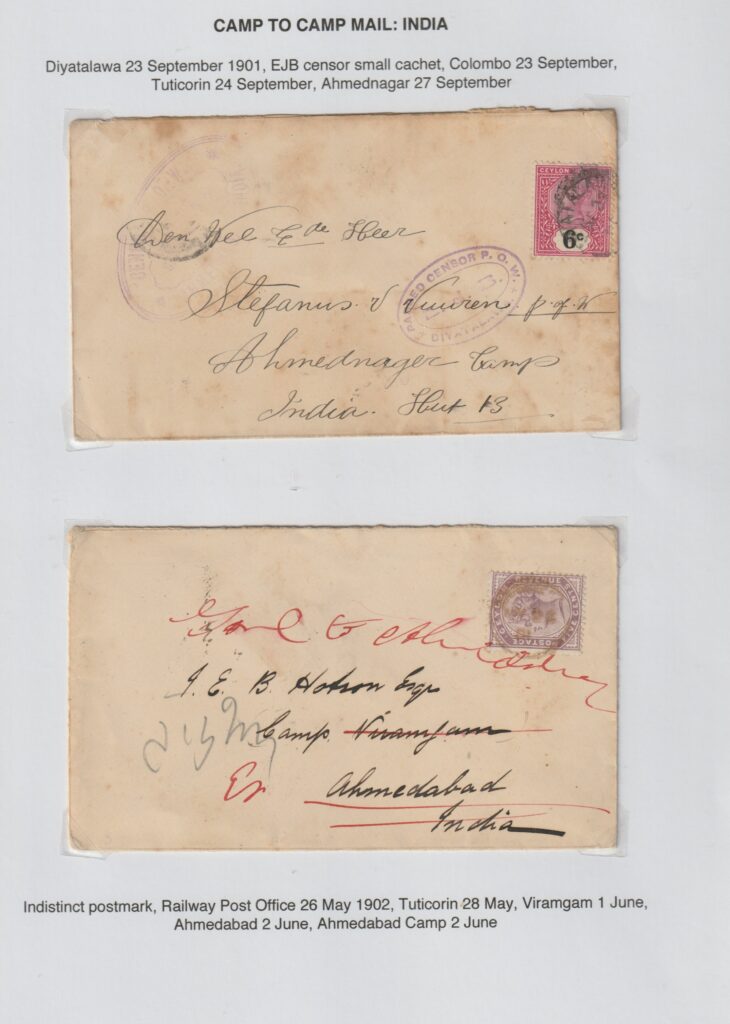 CAMP TO CAMP MAIL: INDIA
Diyatalawa 23 September 1901, EJB censor small cachet, Colombo 23 September,
Tuticorin 24 September, Ahmednagar 27 September
CEYLON
6c
Den Wel Ede Heer
PASSED CENSOR P.O.W.
DIYATALAWA
Stefanus v Vuuren p.of.W
Ahmednager Camp
India. Hut 13
REVENUE
POSTAGE
J. E. B. Hotson Esqr
Camp Viramgam
Ahmedabad
India
Indistinct postmark, Railway Post Office 26 May 1902, Tuticorin 28 May, Viramgam 1 June,
Ahmedabad 2 June, Ahmedabad Camp 2 June